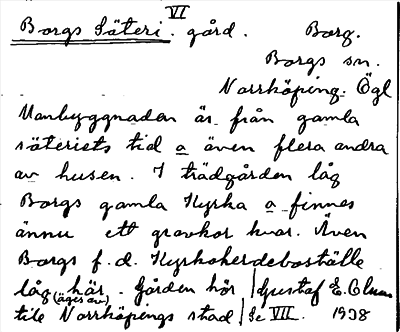 VI
Borgs Säteri. gård. Borg.
Borgs sn.
Norrköping. Ögl
Manbyggnaden är från gamla
säteriets tid a även flera andra
av husen. I trädgården låg
Borgs gamla Kyrka a finnes
ännu ett gravkor kvar. Även
Borgs f.d. Kyrkoherdeboställe
låg här. Gården hör Gustaf E. Olsson
(äges av)
till Norrköpings stad Se VII. 1938